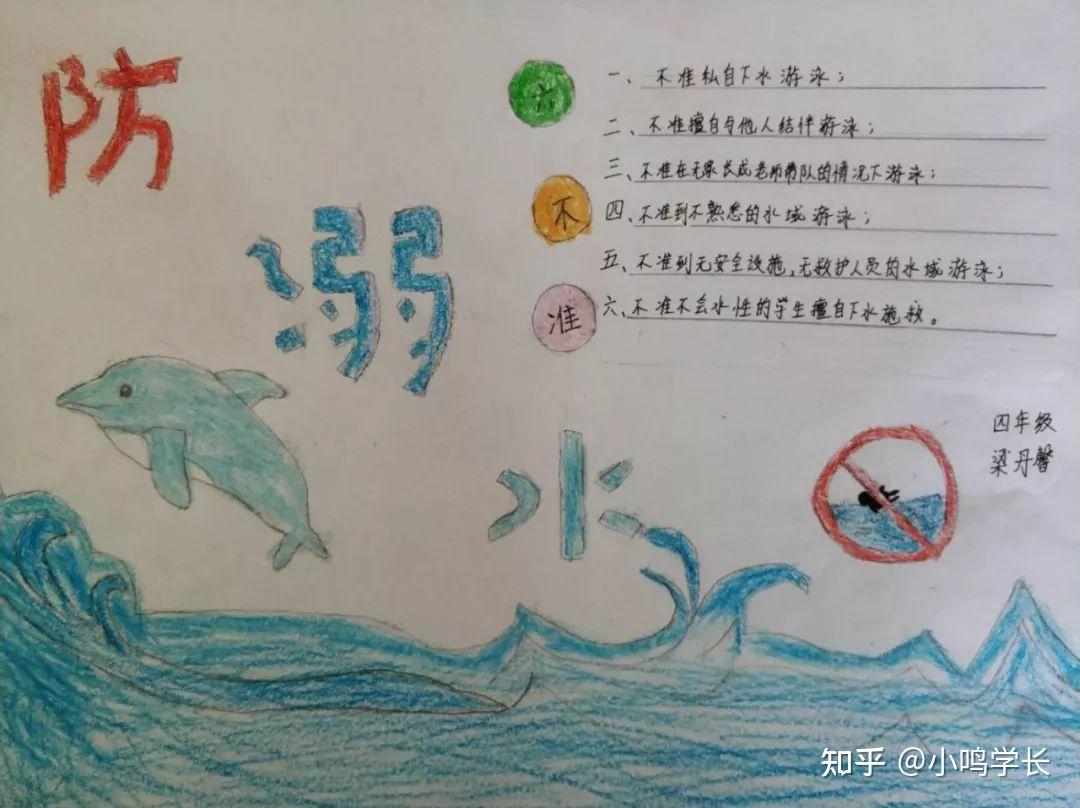 防
溺
水
六
不
准
一、不准私自下水游泳；
二、不准擅自与他人结伴游泳；
三、不准在无家长或老师带队的情况下游泳；
四、不准到不熟悉的水域游泳；
五、不准到无安全设施，无救护人员的水域游泳；
六、不准不会水性的学生擅自下水施救。
四年级
梁丹馨
知乎 @小鸣学长